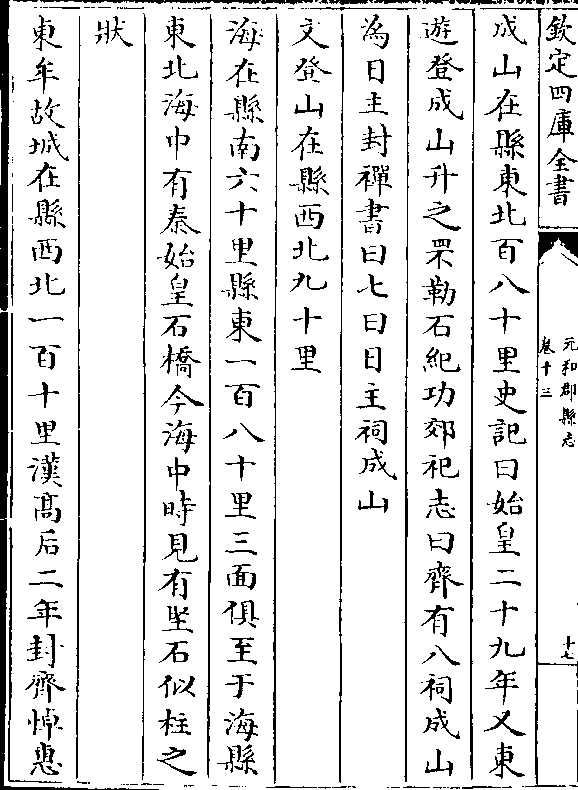 欽定四庫全書
元和郡縣志
卷十三
十七
成山在縣東北百八十里史記曰始皇二十九年又東
遊登成山升之罘勒石紀功郊祀志曰齊有八祠成山
為日主封禪書曰七曰日主祠成山
文登山在縣西北九十里
海在縣南六十里縣東一百八十里三面俱至于海縣
東北海中有秦始皇石橋今海中時見有竪石似柱之
狀
東牟故城在縣西北一百十里漢髙后二年封齊悼惠